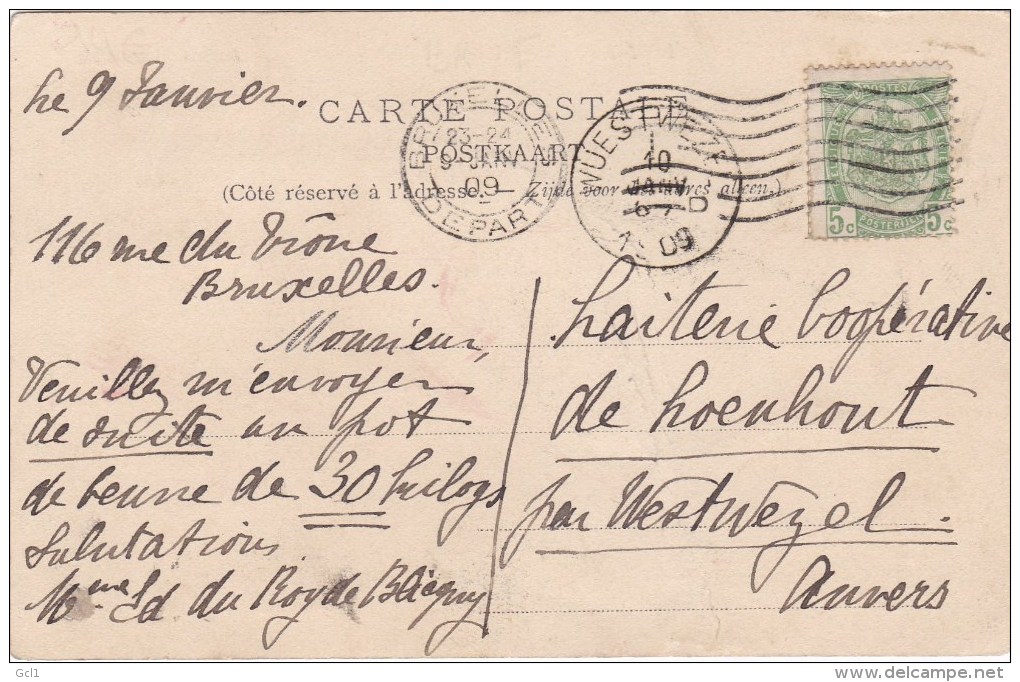 Le 9 Janvier.
CARTE POSTALE
POSTKAART
(Côté réservé à l'adresse.) Zijde voor alleen.)
BRUXELLES
23-24
9 JANV
09
DEPART
WUESTWEZEL
10
JANV
6-7 D
1909
5c POSTERIJEN 5c
116 rue du Trône
Bruxelles.
Monsieur,
Veuillez m'envoyer
de suite un pot
de beurre de 30 kilogs
Salutations
Mme Ed du Roy de Blicquy
Laiterie Coopérative
de Loenhout
par Westwezel.
Anvers
Gcl1
delcampe.net